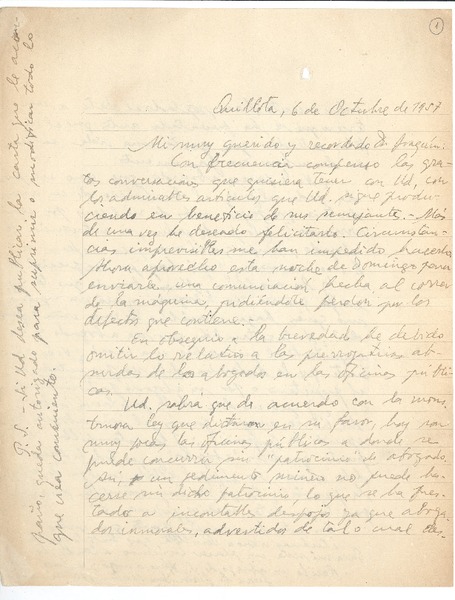 1
Quillota, 6 de Octubre de 1957
Mi muy querido y recordado Dn Joaquín:
Con frecuencia compenso las gra-
tas conversaciones que quisiera tener con Ud, con
los admirables artículos que Ud. sigue produ-
ciendo en beneficio de sus semejantes.- Más
de una vez he deseado felicitarlo. Circunstan-
cias imprevisibles me han impedido hacerlo.
Ahora aprovecho esta noche de Domingo para
enviarle una comunicación hecha al correr
de la máquina, pidiéndole perdón por los
defectos que contiene.-
En obsequio a la brevedad he debido
omitir lo relativo a las prerrogativas ab-
surdas de los abogados en las oficinas públi-
cas.
Ud. sabrá que de acuerdo con la mons-
truosa ley que dictaron en su favor, hay son
muy pocas las oficinas públicas a donde se
puede concurrir sin "patrocinio" de abogado.
Así, un pedimento minero no puede ha-
cerse sin dicho patrocinio, lo que se ha pres-
tado a incontables despojos ya que aboga-
dos inmorales, advertidos de tal o cual des-
P.S.- Si Ud desea publicar la carta que le acom-
paño, queda autorizado para suprimir o modificar todo lo
que vea conveniente.